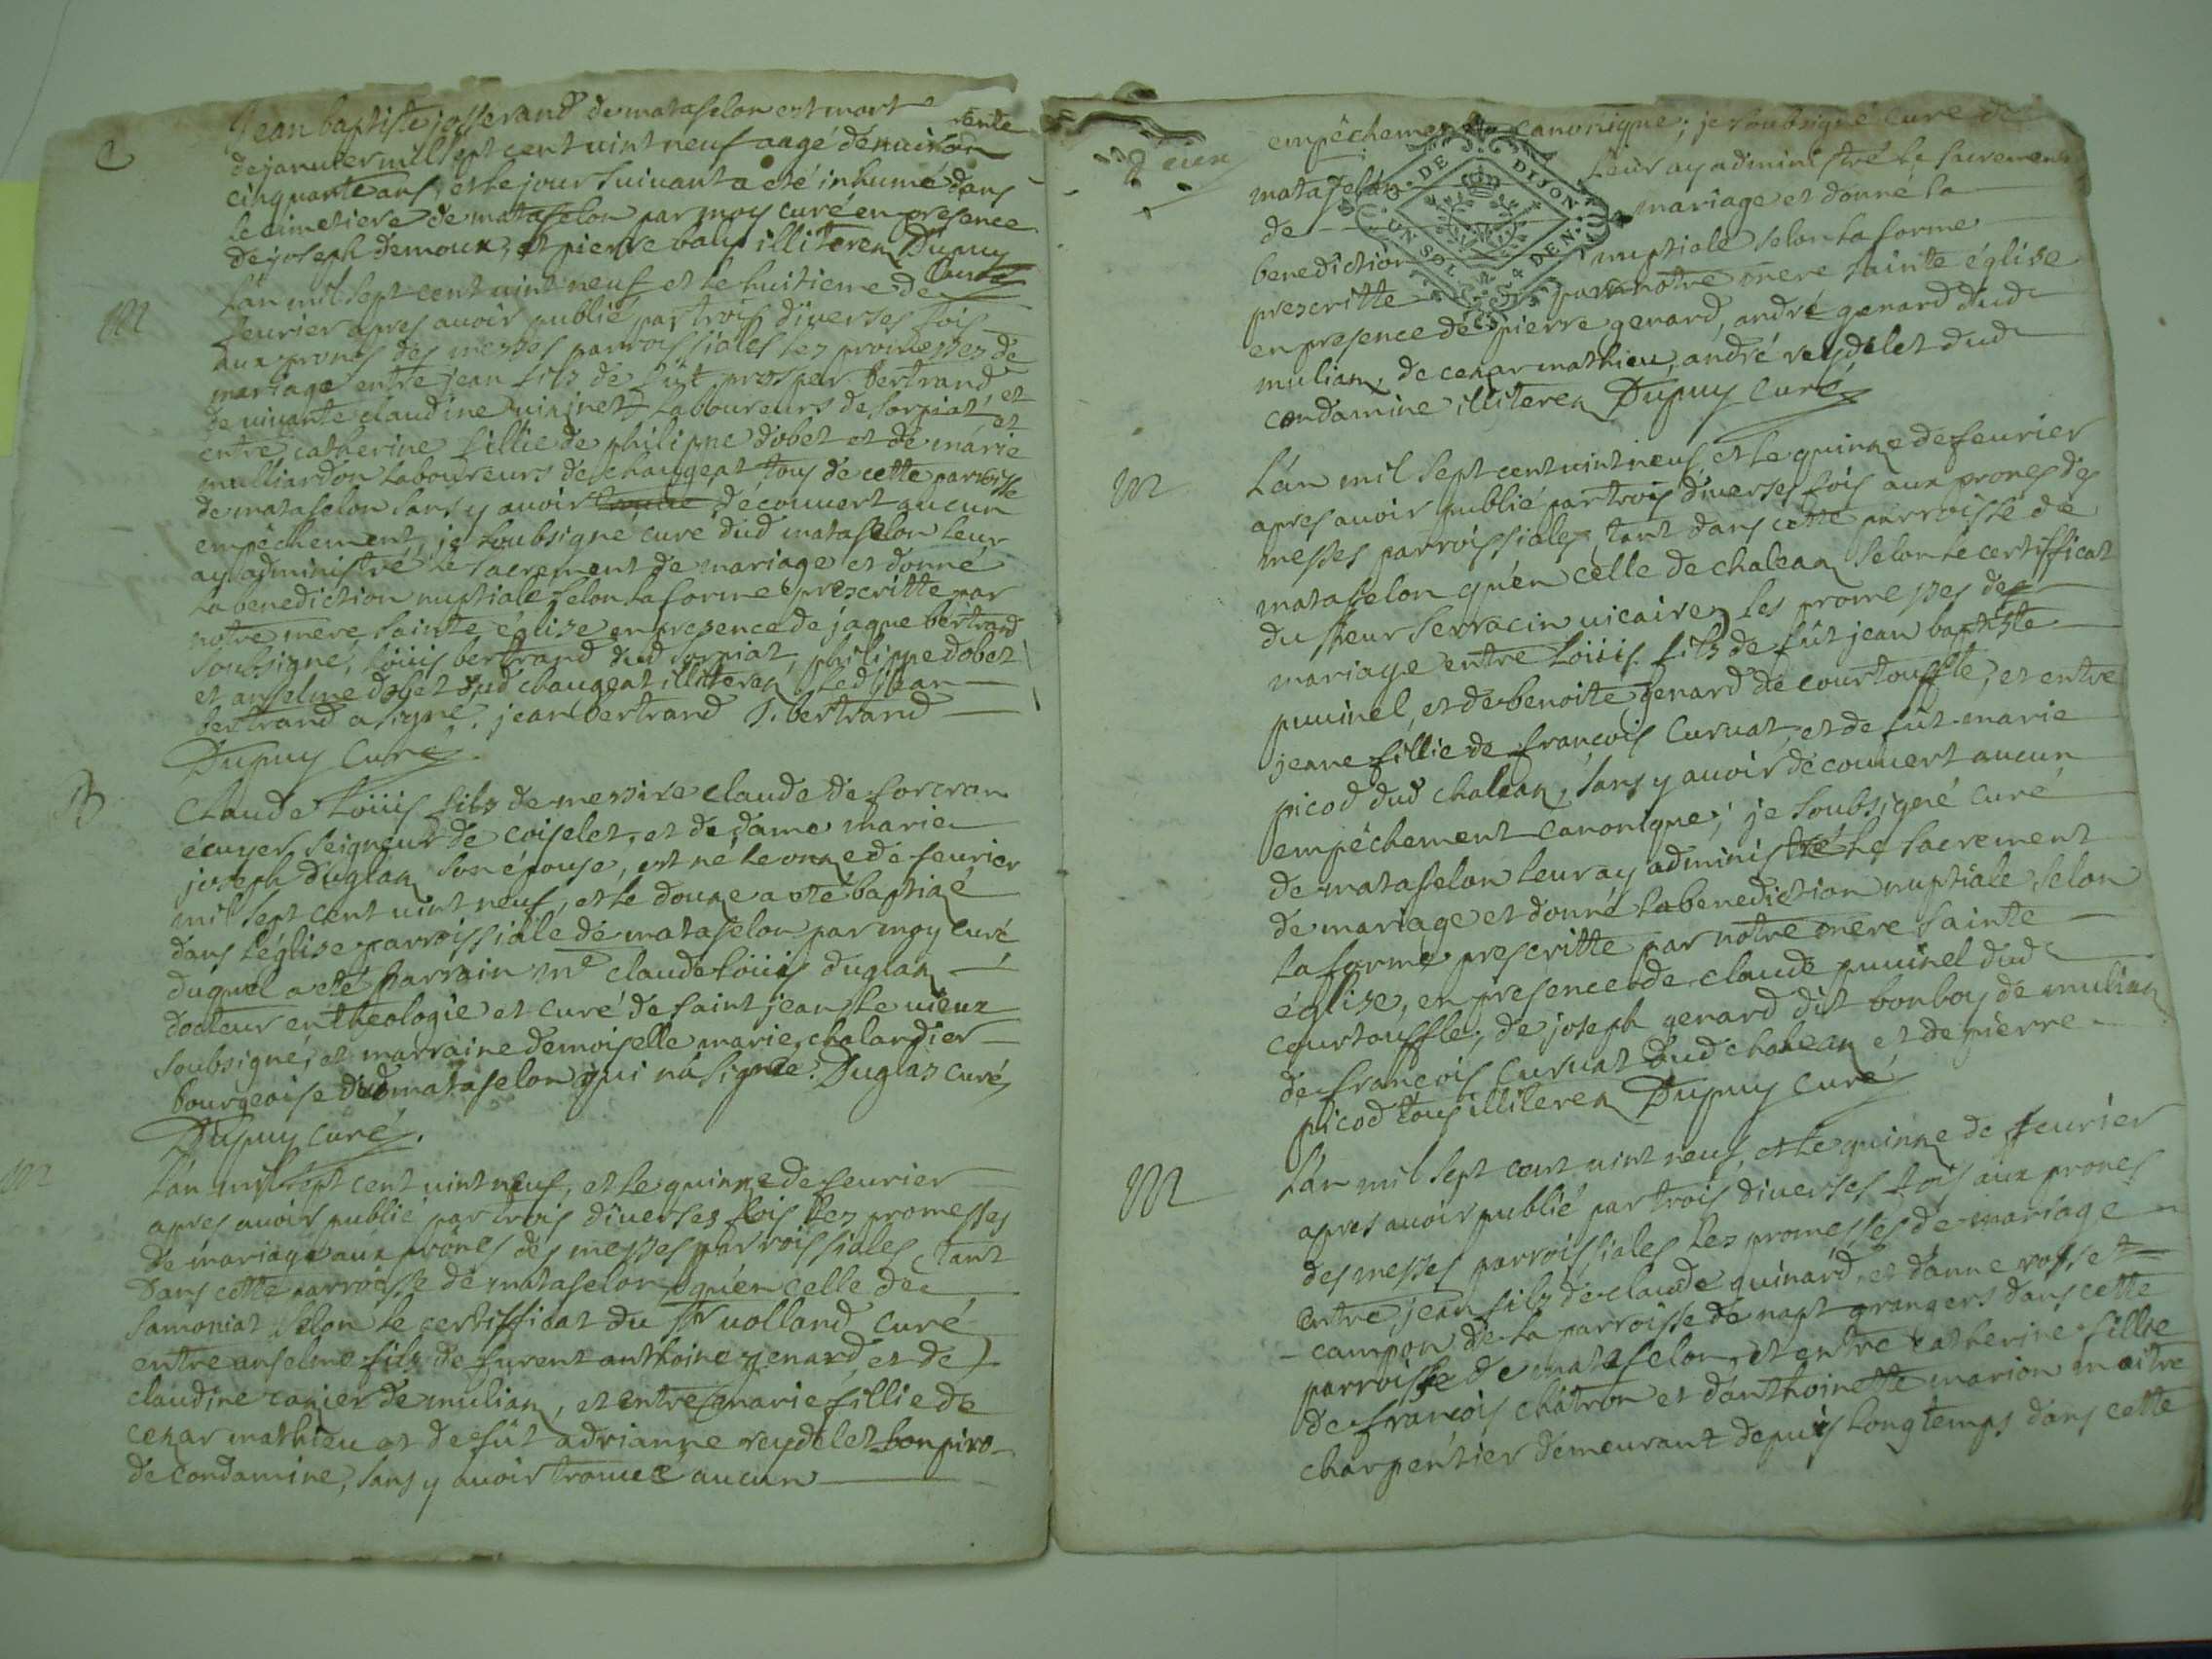 e
Jean baptiste josserand de mataselon est mort le trente
de janvier mil sept cent vint neuf aagé denviron
cinquante ans, et le jour suivant a eté inhumé dans
le cimetiere de mataselon par moy curé en presence
de joseph demoux, et pierre baly illiterez Dupuy
Curé
M
L'an mil sept cent vint neuf et le huitieme de
feurier apres auoir publié par trois diuerses fois
aux prones des messes parroissiales les promesses de
mariage entre jean fils de fût prosper bertrand et
de uiuante claudine uinjnet laboureurs de sorpiat, et
entre catherine fillie de philippe dobet et de marie
mulliardon laboureurs de chaugeat tous de cette parroisse
de mataselon sans y auoir decouuert aucun
empêchement, je soubsigné curé dud mataselon leur
ay administré le sacrement de mariage et donné
la benediction nuptiale selon la forme prescritte par
notre mere sainte église en presence de jaque bertrand
soubsigné, loüis bertrand dud sorpiat, philippe dobet
et anselme dobet dud chaugeat illiterez led jean
bertrand a signé. jean bertrand J. bertrand
Dupuy Curé
B
Claude Loüis fils de messire claude de forcran
écuyer, seigneur de coiselet, et de dame marie
joseph duglaz son épouse, est né le onze de feurier
mil sept cent uint neuf, et le douze a eté baptizé
dans l'église parroissiale de mataselon par moy curé
duquel a eté parrain Me claude loüis duglaz
docteur en theologie et curé de saint jean le uieux
soubsigné, et marraine demoiselle marie chalandier
bourgeoise dud mataselon qui n'a signé. Duglaz curé,
Dupuy curé.
M
L'an mil sept cent uint neuf, et le quinze de feurier
apres auoir publié par trois diuerses fois les promesses
de mariage aux prônes des messes parroissiales, tant
dans cette parroisse de mataselon, qu'en celle de
samoniat selon le certifficat du Sr uolland curé
entre anselme fils de furent anthoine genard, et de
claudine cazier de muliaz, et entre marie fillie de
cezar mathieu et de fût adrianne reydelet bonpiro
de condamine, sans y auoir trouué aucun
deux
empêchement canonique; je soubsigné curé de
mataselon leur ay administré le sacrement
de mariage et donné la
benediction nuptiale selon la forme
prescritte par notre mere sainte église
en presence de pierre genard, andré genard dud
muliaz, de cezar mathieu, andré reydelet dud
condamine illiterez Dupuy Curé
G. DE DIJON
UN SOL 4 DEN.
M
L'an mil sept cent uint neuf et le quinze de feurier
apres auoir publié par trois diuerses fois aux prones des
messes parroissiales, tant dans cette parroisse de
mataselon qu'en celle de chaleaz selon le certifficat
du sieur serracin uicaire, les promesses de
mariage entre loüis fils de fût jean baptiste
puuinel, et de benoite genard de courtouffle, et entre
jeane fillie de françois curuat, et de fût marie
picod dud chaleaz, sans y auoir decouuert aucun
empêchement canonique; je soubsigné curé
de mataselon leur ay administré le sacrement
de mariage et donné la benediction nuptiale selon
la forme prescritte par notre mere sainte
église, en presence de claude puuinel dud
courtouffle, de joseph genard dit bonboy de muliaz
de françois curuat dud chaleaz et de pierre
picod tous illiterez Dupuy curé
M
L'an mil sept cent uint neuf, et le quinze de feurier
apres auoir publié par trois diuerses fois aux prones
des messes parroissiales les promesses de mariage
entre jean fils de claude guinard et d'anne rosset
campon de la parroisse de napt grangers dans cette
parroisse de mataselon, et entre catherine fillie
de françois châtron et d'anthoinette marion maitre
charpentier demeurant depuis longtemps dans cette